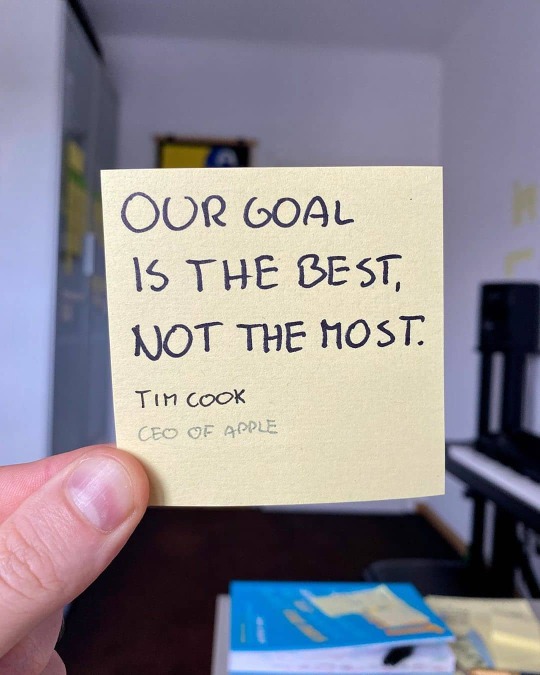 OUR GOAL
IS THE BEST,
NOT THE MOST.
TIM COOK
CEO OF APPLE